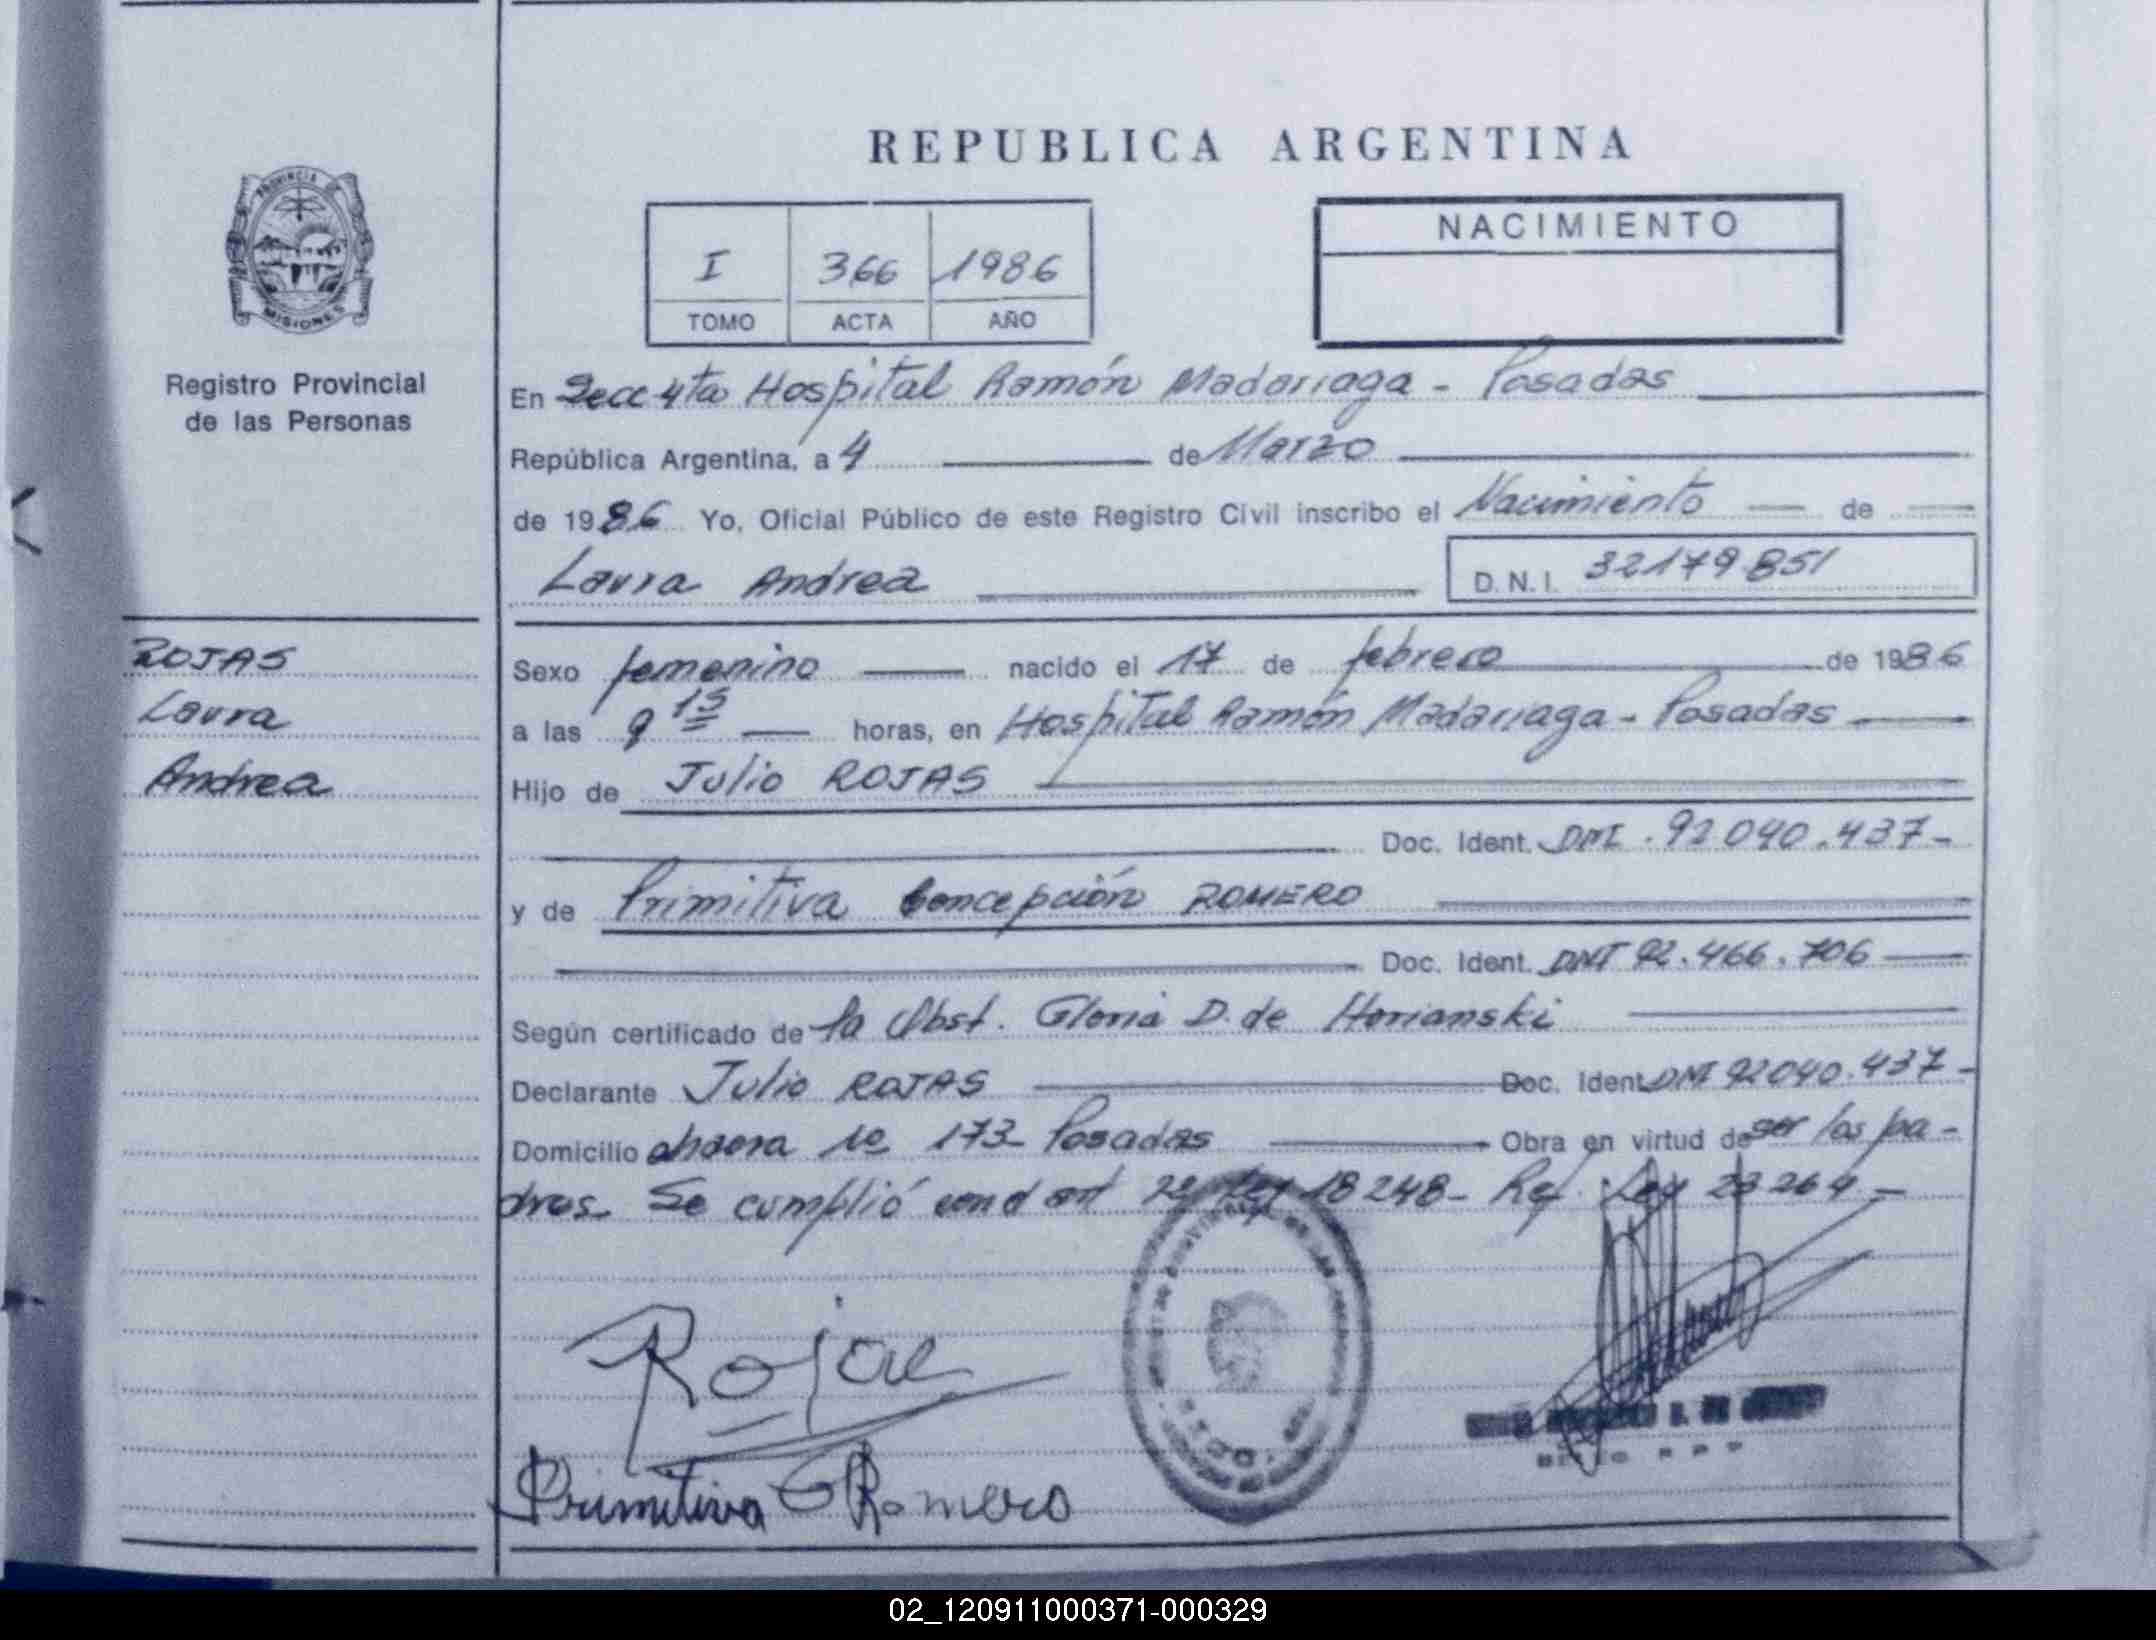 REPUBLICA ARGENTINA
PROVINCIA DE
MISIONES
Registro Provincial
de las Personas
I 366 1986
TOMO ACTA AÑO
NACIMIENTO
En Secc 4ta Hospital Ramón Madariaga - Posadas
República Argentina, a 4 de Marzo
de 1986 Yo, Oficial Público de este Registro Civil inscribo el Nacimiento de
Laura Andrea D.N.I. 32179851
ROJAS
Laura
Andrea
Sexo femenino nacido el 17 de febrero de 1986
a las 9 15 horas, en Hospital Ramón Madariaga - Posadas
Hijo de Julio ROJAS
Doc. Ident. DNI. 92 040.437-
y de Primitiva Concepción ROMERO
Doc. Ident. DNI 92.466.706
Según certificado de la Obst. Gloria D. de Horianski
Declarante Julio ROJAS Doc. Ident. DNI 92040.437-
Domicilio chacra 173- Posadas Obra en virtud de ser los pa-
dres. Se cumplió con el art Ley 18248- Ref. Ley 23264-
Rojas
Primitiva C Romero
02_120911000371-000329